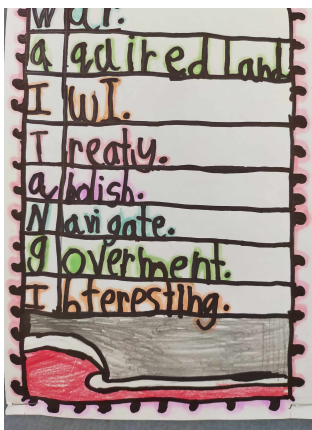 War.
aquired land
IwI.
Treaty.
abolish.
Navigate.
goverment.
Interesting.